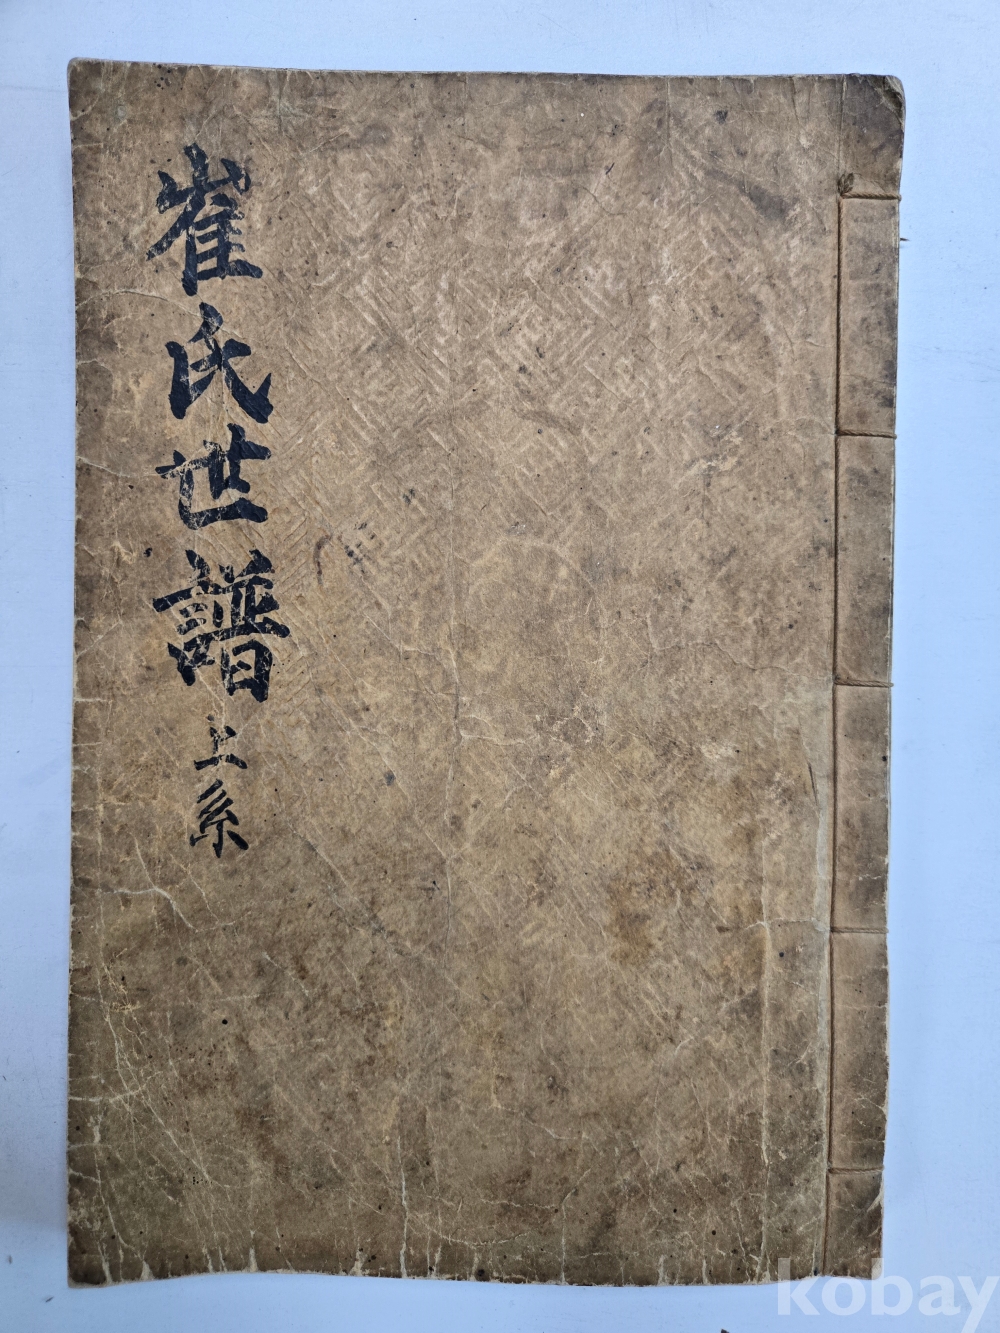 崔氏世譜 上系
kobay